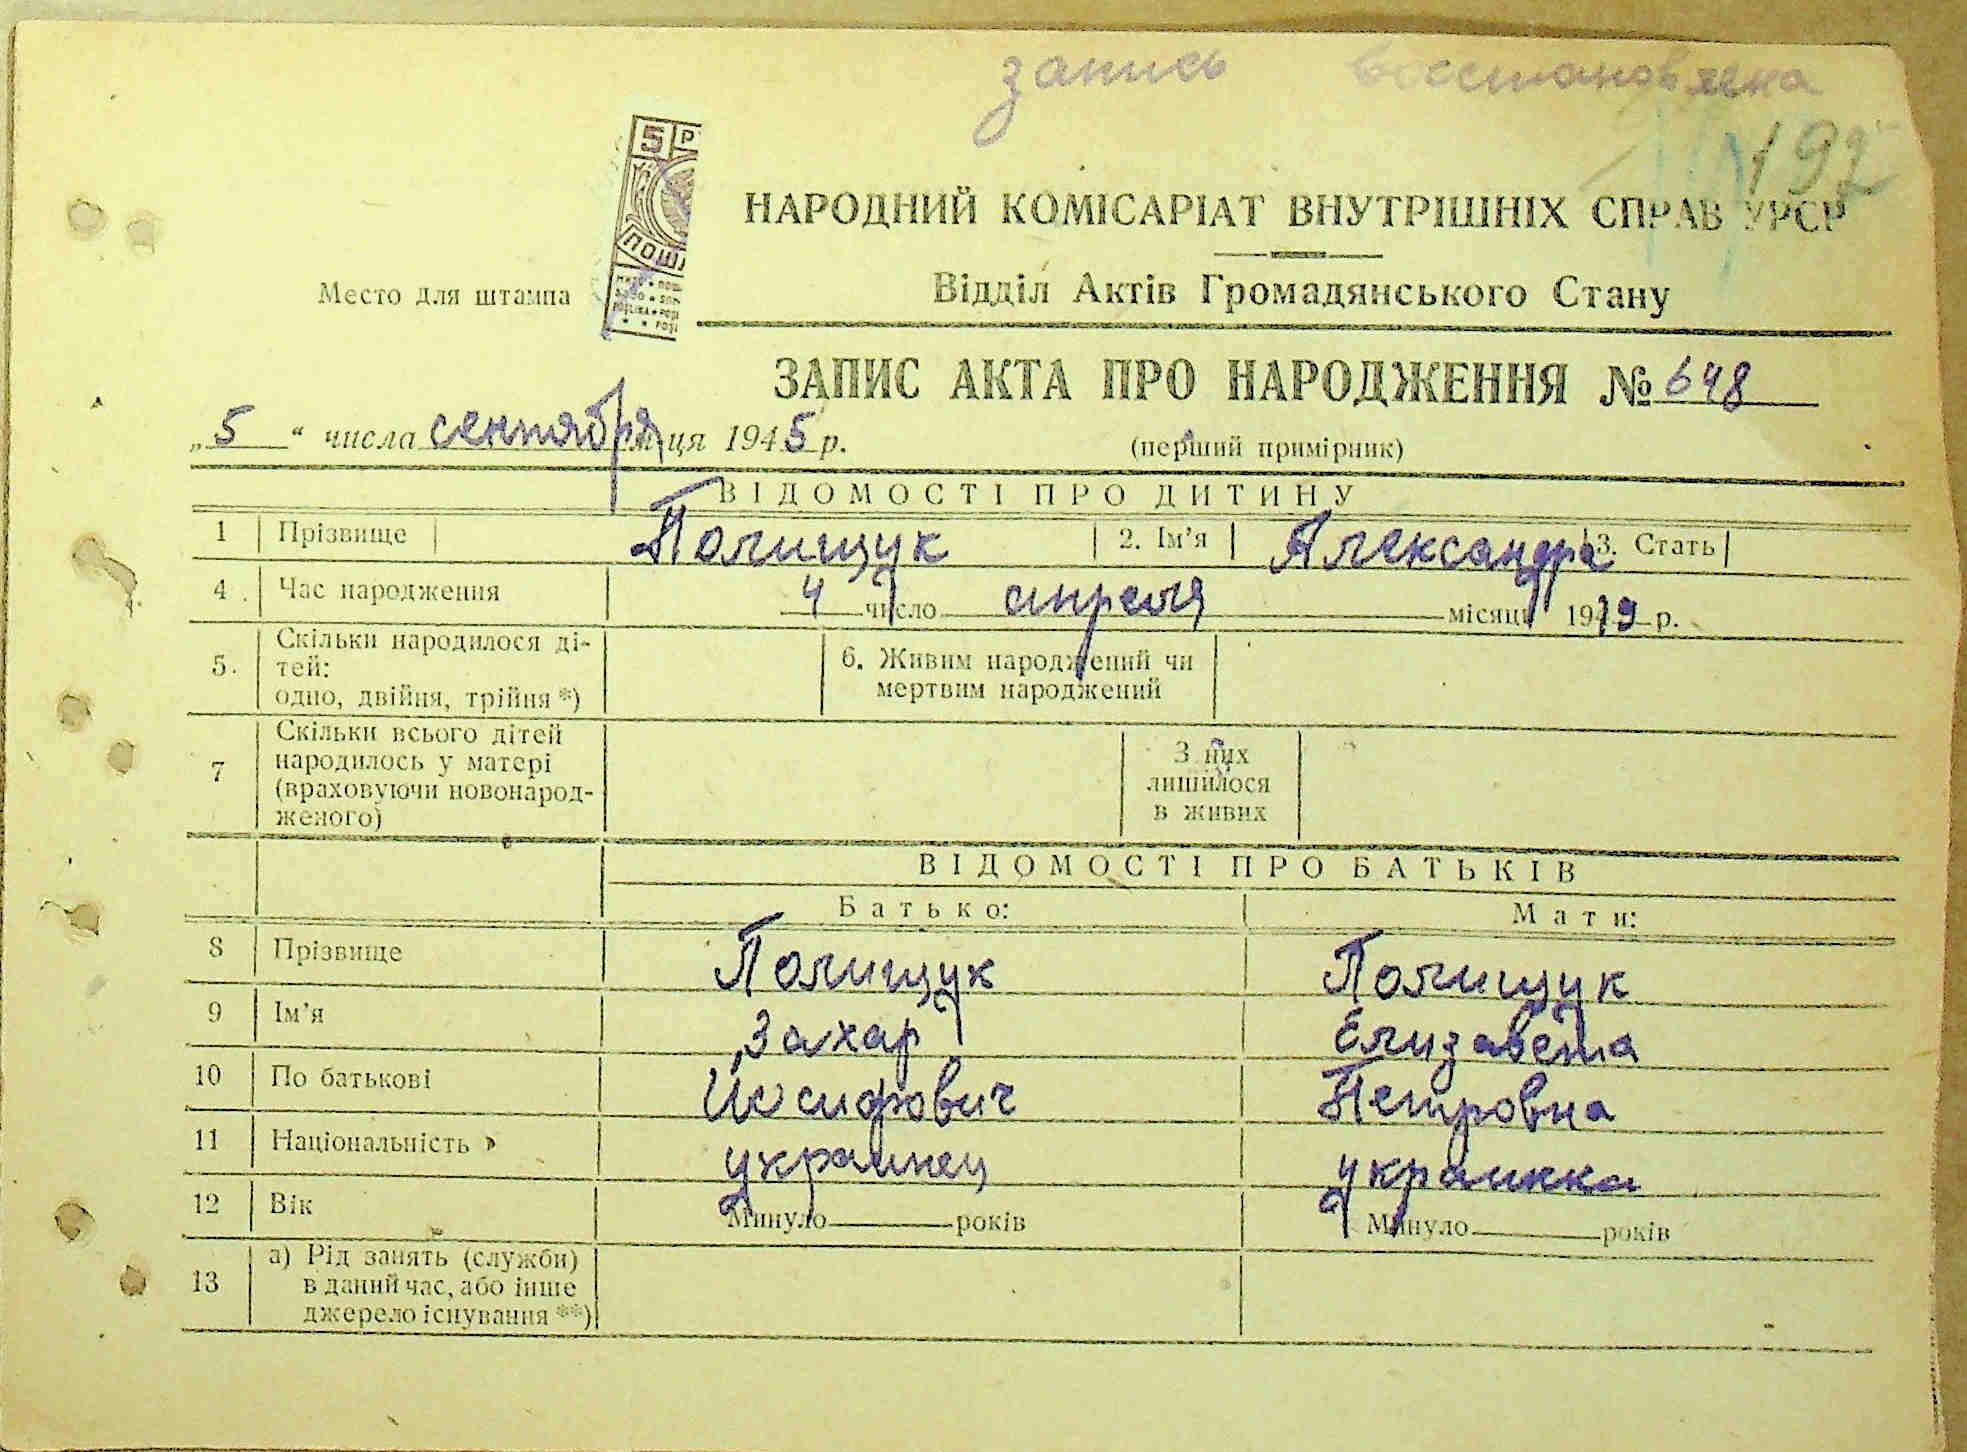 запись восстановлена
192
5 Р
ПОШ
НАРОДНИЙ КОМІСАРІАТ ВНУТРІШНІХ СПРАВ УРСР
Место для штампа
Відділ Актів Громадянського Стану
ЗАПИС АКТА ПРО НАРОДЖЕННЯ № 648
„5“ числа сентября м-ця 1945 р.
(перший примірник)
ВІДОМОСТІ ПРО ДИТИНУ
1 Прізвище Полищук 2. Ім’я Александра 3. Стать
4. Час народження 4 число апреля місяця 1919 р.
5. Скільки народилося ді-
тей:
одно, двійня, трійня *)
6. Живим народжений чи
мертвим народжений
7 Скільки всього дітей
народилось у матері
(враховуючи новонарод-
женого)
З них
лишилося
в живих
ВІДОМОСТІ ПРО БАТЬКІВ
Батько: Мати:
8 Прізвище Полищук Полищук
9 Ім’я Захар Елизавета
10 По батькові Иосифович Петровна
11 Національність украинец украинка
12 Вік Минуло років Минуло років
13 а) Рід занять (служби)
в даний час, або інше
джерело існування **)